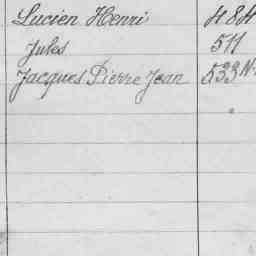 Lucien Henri 484
Jules 511
Jacques Pierre Jean 533 N.